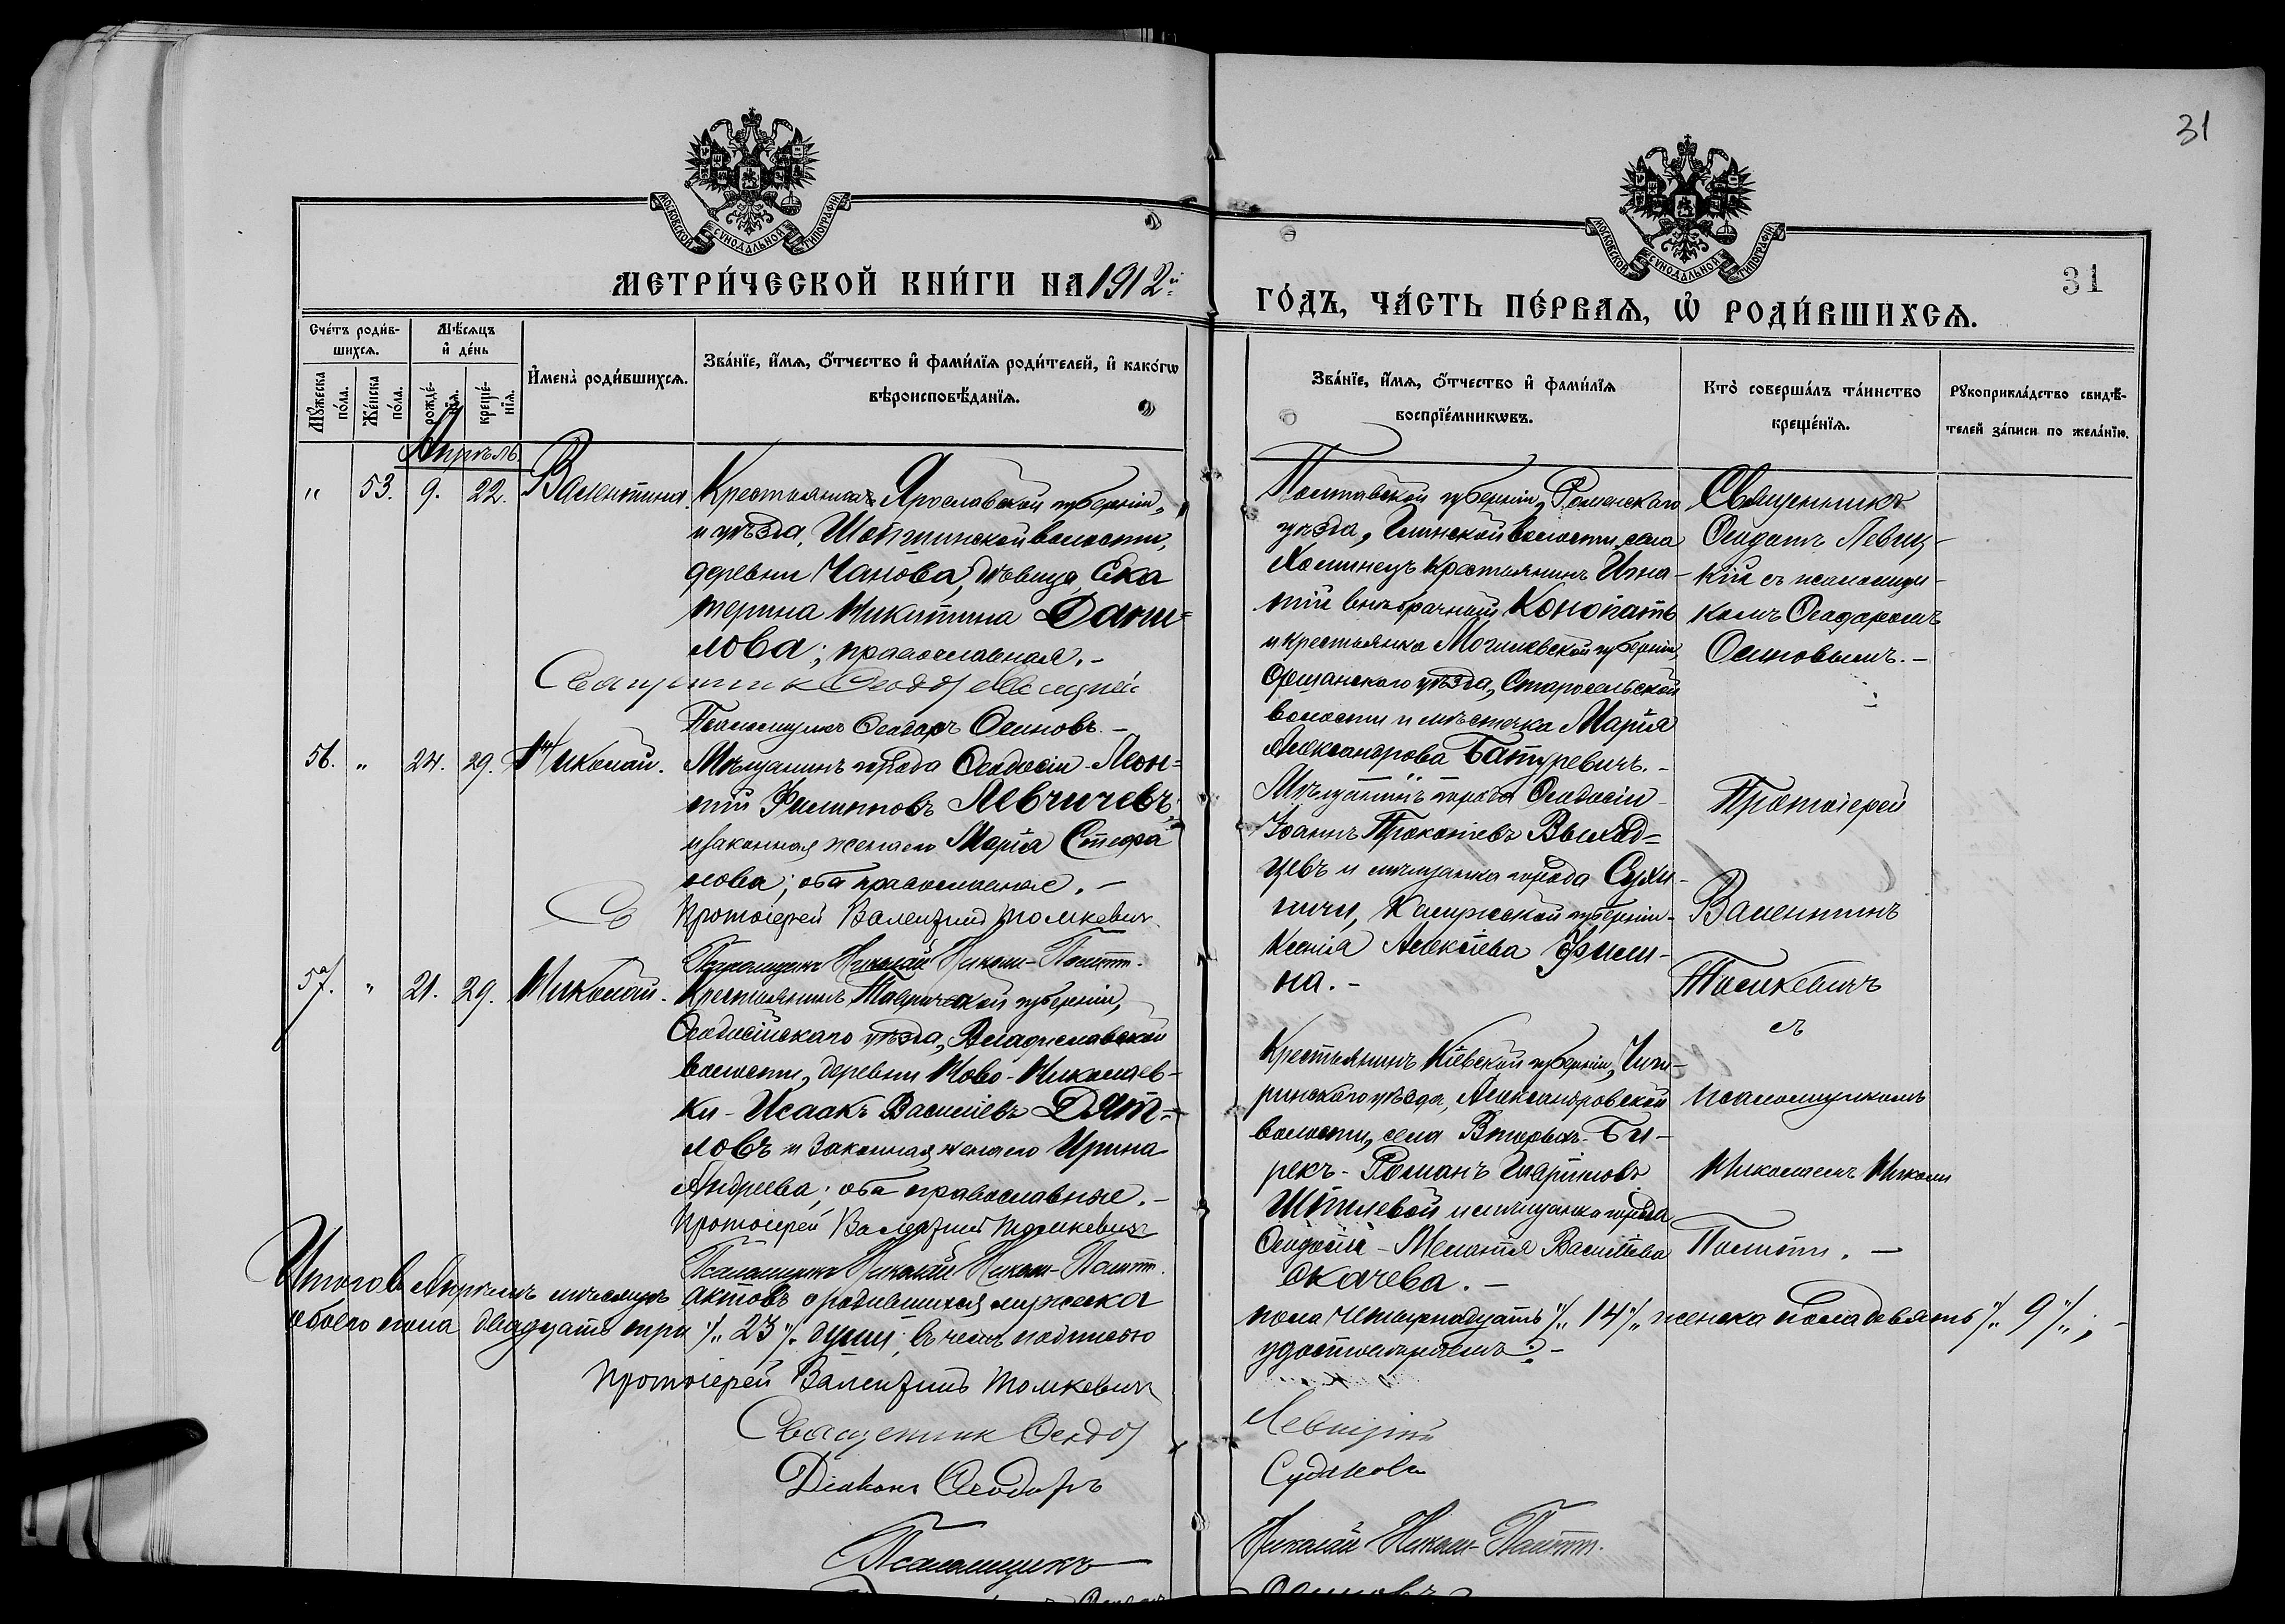 31
МОСКОВСКОЙ СѴНОДАЛЬНОЙ ТИПОГРАФІИ
МОСКОВСКОЙ СѴНОДАЛЬНОЙ ТИПОГРАФІИ
МЕТРИ́ЧЕСКОЙ КНИ́ГИ НА 1912й
ГО́ДЪ, ЧА́СТЬ ПЕ́РВАѦ, Ѡ҆ РОДИ́ВШИХСѦ.
31
Сче́тъ роди́в-
шихсѧ.
Мѣ́сѧцъ
и҆ де́нь
Мꙋ́жеска по́ла.
Же́нска по́ла.
рожде́-
нїѧ.
креще́-
нїѧ.
И҆мена̀ роди́вшихсѧ.
Зва́нїе, и҆́мѧ, ѻ҆́тчество и҆ фами́лїѧ роди́телей, и҆ како́гѡ
вѣроисповѣ́данїѧ.
Зва́нїе, и҆́мѧ, ѻ҆́тчество и҆ фами́лїѧ
воспрїе́мникѡвъ.
Кто̀ соверша́лъ та́инство
креще́нїѧ.
Рꙋкоприкла́дство свидѣ́-
телей за́писи по жела́нїю.
Апрѣль.
" 53. 9. 22. Валентина.
Крестьянка Ярославской губерніи,
и уѣзда, волости,
деревни Чанова, дѣвица Ека
терина Никитина Дани=
лова; православная. -
Священник Феодо Левицкій
Псаломщикъ Феодоръ Осиновъ. -
Полтавской губерніи, Роменскаго
уѣзда, Глинской волости, села
Хоминецъ крестьянинъ Игна-
тій внѣбрачный Конопатъ
и крестьянка Могилевской губерніи,
Оршанскаго уѣзда, Старосельской
волости и мѣстечка Марія
Александрова Батуревичъ. -
Священникъ
Феодотъ Левиц-
кій съ псаломщи-
комъ Феодоромъ
Осиновымъ. -
56. " 24. 29. Николай.
Мѣщанинъ города Феодосіи - Леон=
тій Филипповъ Левчичевъ
и законная жена его Марія Стефа
нова; оба православные. -
Протоіерей Валентинъ Томкевич
Псаломщикъ Николай Ником-Политт.
Мѣщанинъ города Феодосіи -
Іоаннъ Прокопіевъ Выход=
цевъ и мѣщанка города Сухи-
ничи, Калужской губерніи -
Ксенія Алексіева Фили-
на. -
Протоіерей
Валентинъ
Томкевичъ
съ
псаломщикомъ
Николаемъ Ником
Политт. -
57. " 21. 29. Николай.
Крестьянинъ Таврической губерніи,
Феодосійскаго уѣзда, Владиславской
волости, деревни Ново-Николаев-
ки - Исаакъ Василіевъ Дят=
ловъ и законная жена его Ирина
Андреева; оба православные. -
Протоіерей Валентинъ Томкевич
Псаломщикъ Николай Ником-Политт.
Крестьянинъ Кіевской губерніи, Чиги-
ринскаго уѣзда, Александровской
волости, села
рекъ - Романъ Гавриловъ
Шпилевой и мѣщанка города
Феодосіи - Меланія Василіева
Скачева. -
Итого въ Апрѣлѣ мѣсяцѣ актовъ о родившихся мужеска пола четырнадцать ". 14 ". женска пола девять ". 9 ".; -
обоего пола двадцать три ". 23 ". души; въ чемъ подписью удостовѣряемъ: -
Протоіерей Валентинъ Томкевич
Священник Феодо Левицкій
Діаконъ Феодоръ Судаковъ
Псаломщикъ Николай Ником-Политт.